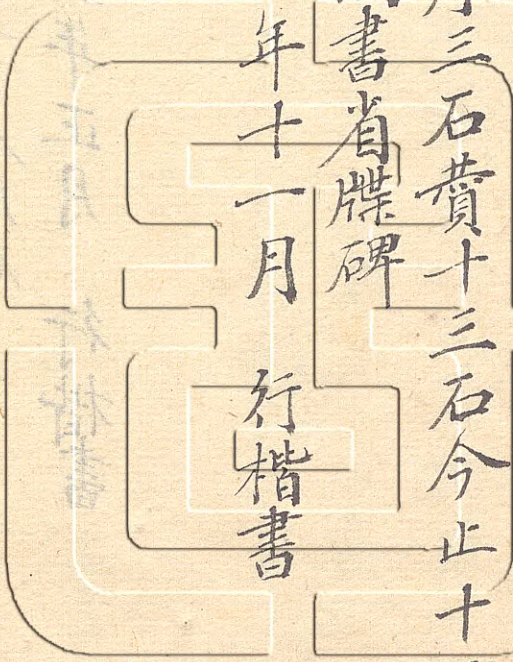 三石費十三石今止十
書省牒碑
年十一月　行楷書